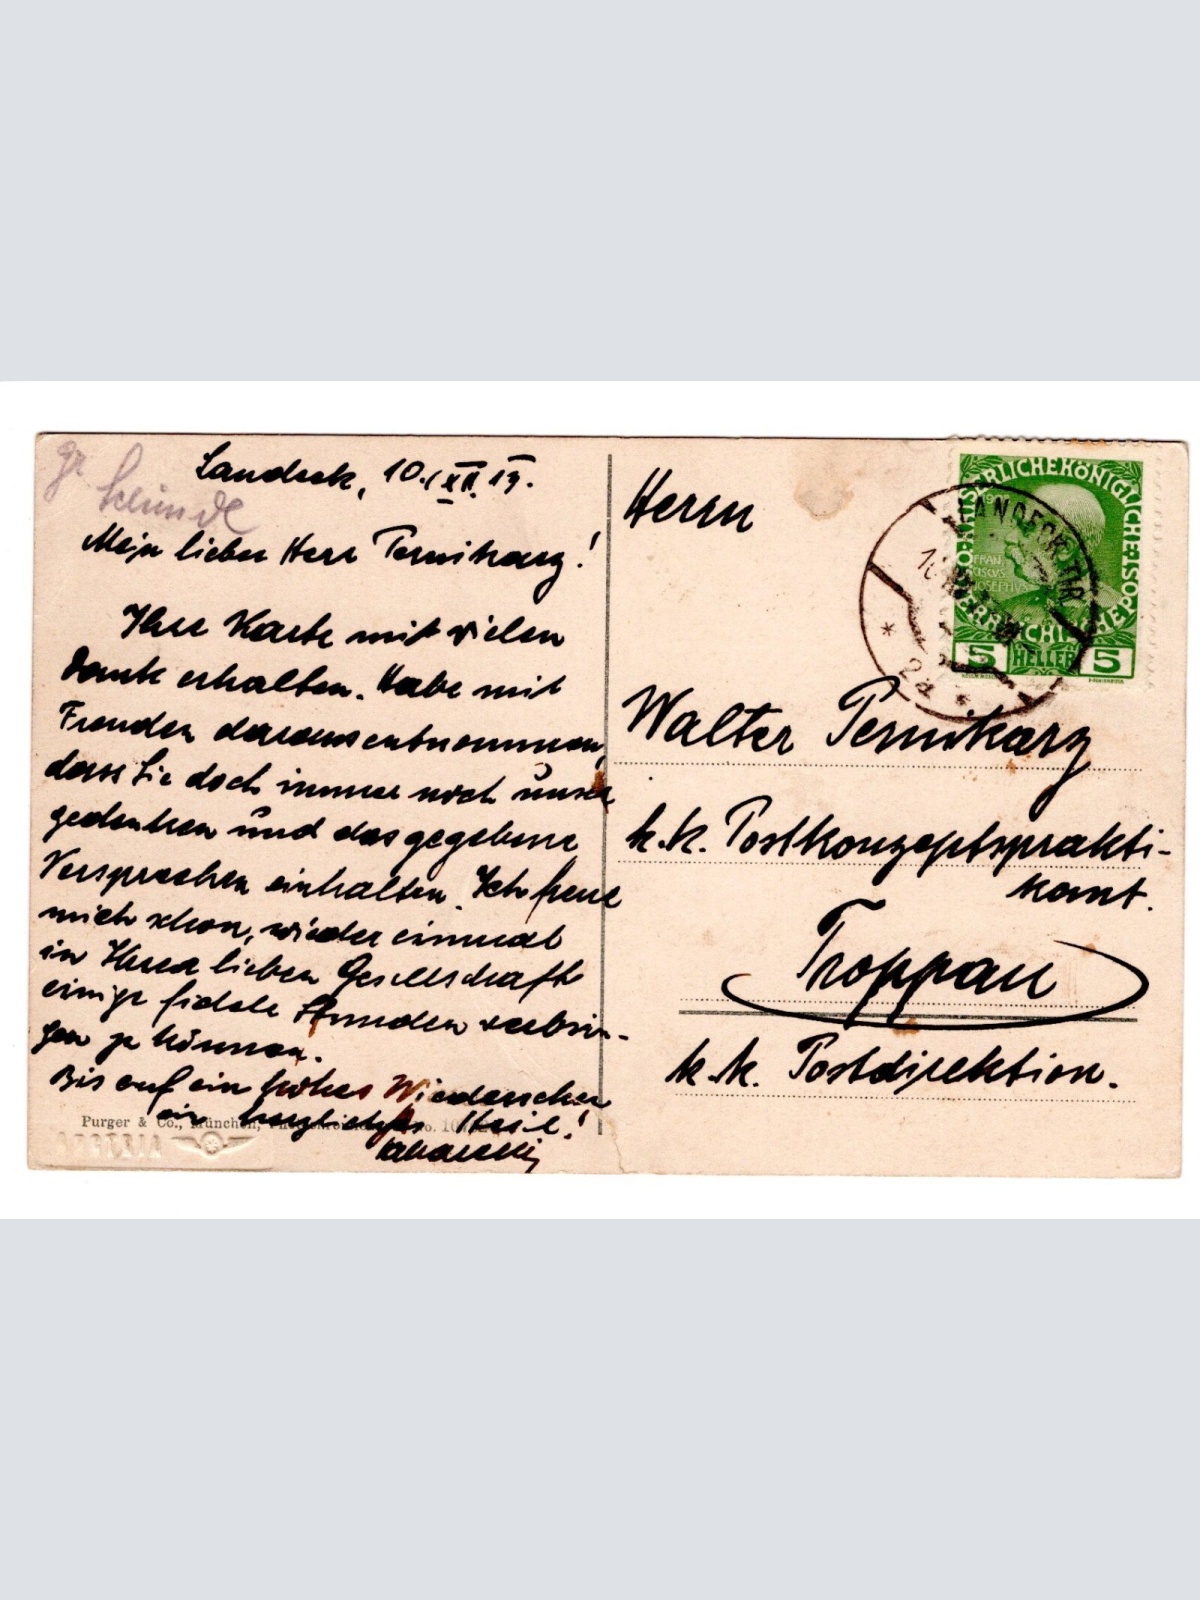 Landeck, 10./XII. 13.
Mein lieber Herr Pernikarz!
Ihre Karte mit vielen
Dank erhalten. Habe mit
Freuden daraus entnommen,
dass Sie doch immer noch unser
gedenken und das gegebene
Versprechen einhalten. Ich freue
mich schon, wieder einmal
in Ihrer lieben Gesellschaft
einige fidele Stunden verbrin-
gen zu können.
Bis auf ein frohes Wiedersehen
ein herzliches Heil!
Purger & Co., München,
AUSTRIA
Herrn
Walter Pernikarz
k. k. Postkonzeptsprakti-
kant.
Troppau
k. k. Postdirektion.
KAISERLICHEKÖNIGLICHE
ÖSTERREICHISCHEPOST
1908
FRAN
CISCUS
JOSEPHUS
5 HELLER 5
LANDECK TIR
* 2a *